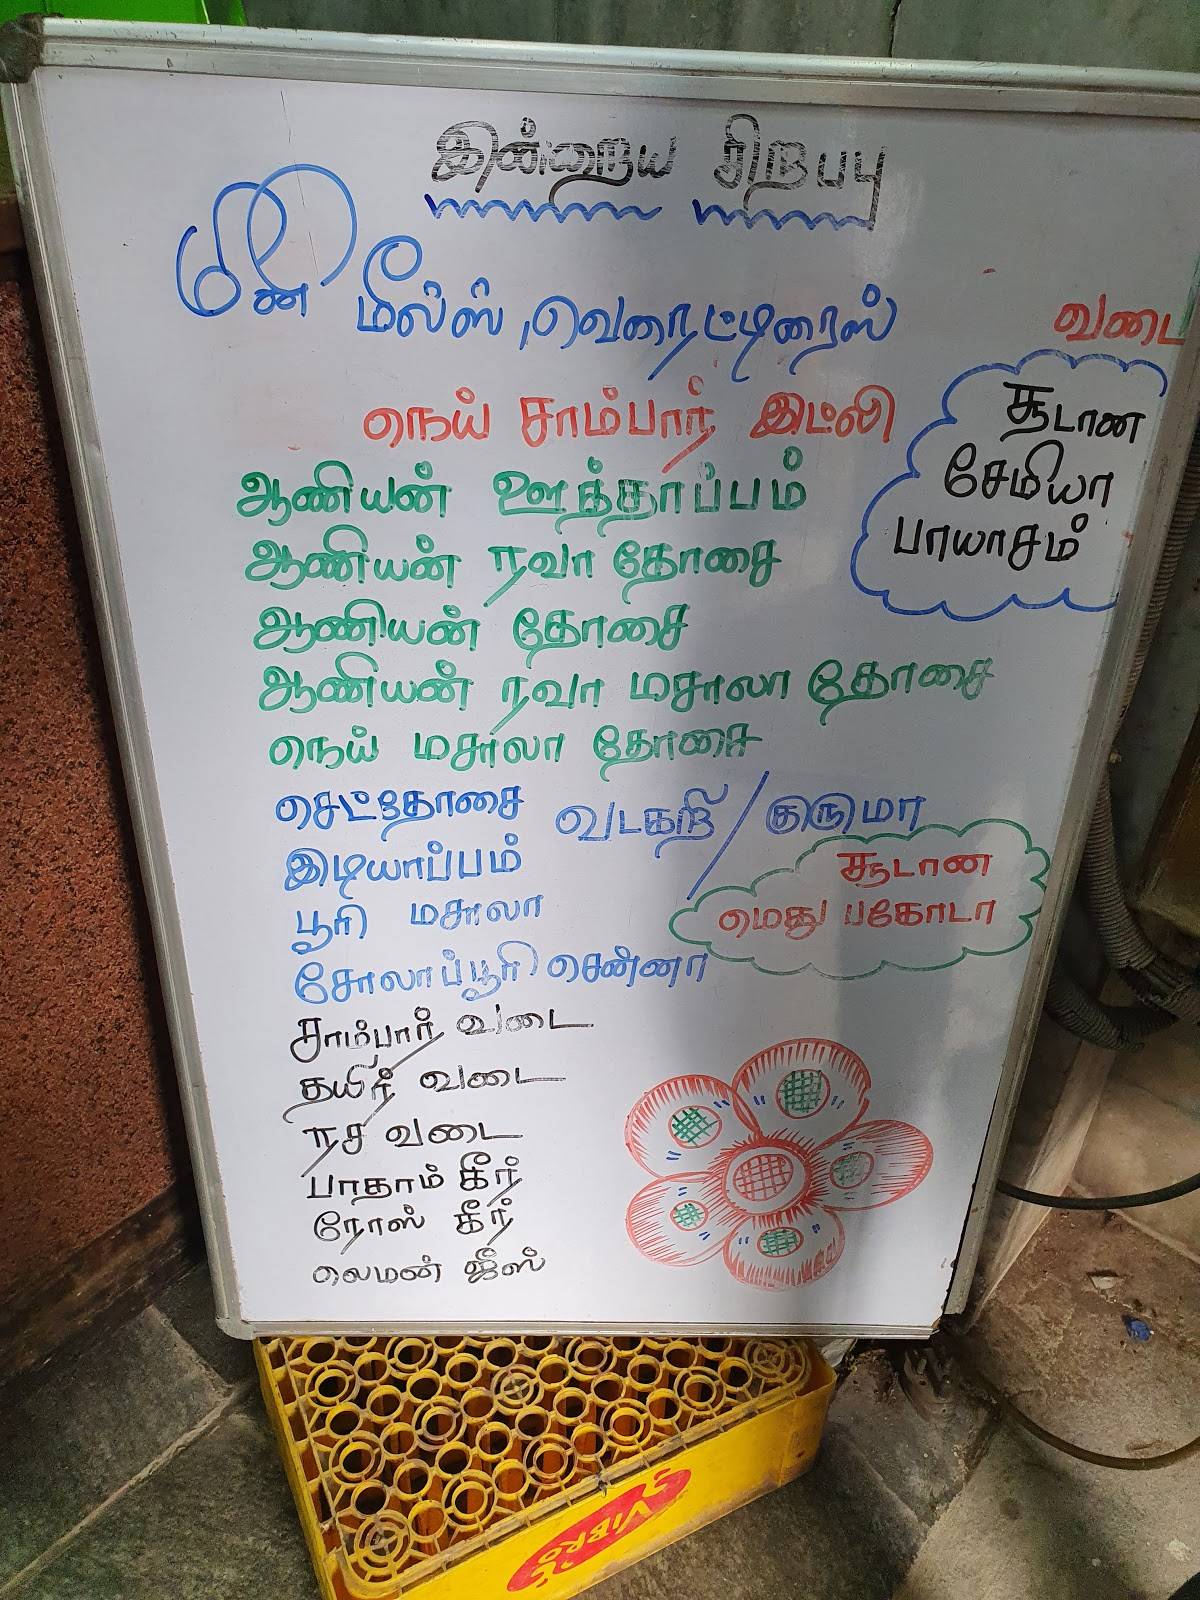 இன்றைய சிறப்பு
மினி மீல்ஸ், வெரைட்டிரைஸ்
வடை
நெய் சாம்பார் இட்லி
சூடான
சேமியா
பாயாசம்
ஆனியன் ஊத்தாப்பம்
ஆனியன் ரவா தோசை
ஆனியன் தோசை
ஆனியன் ரவா மசாலா தோசை
நெய் மசாலா தோசை
செட்தோசை வடகறி / குருமா
இடியாப்பம்
சூடான
மெது பகோடா
பூரி மசாலா
சோலாப்பூரி சென்னா
சாம்பார் வடை
தயிர் வடை
ரச வடை
பாதாம் கீர்
ரோஸ் கீர்
லெமன் ஜீஸ்
VIBRO